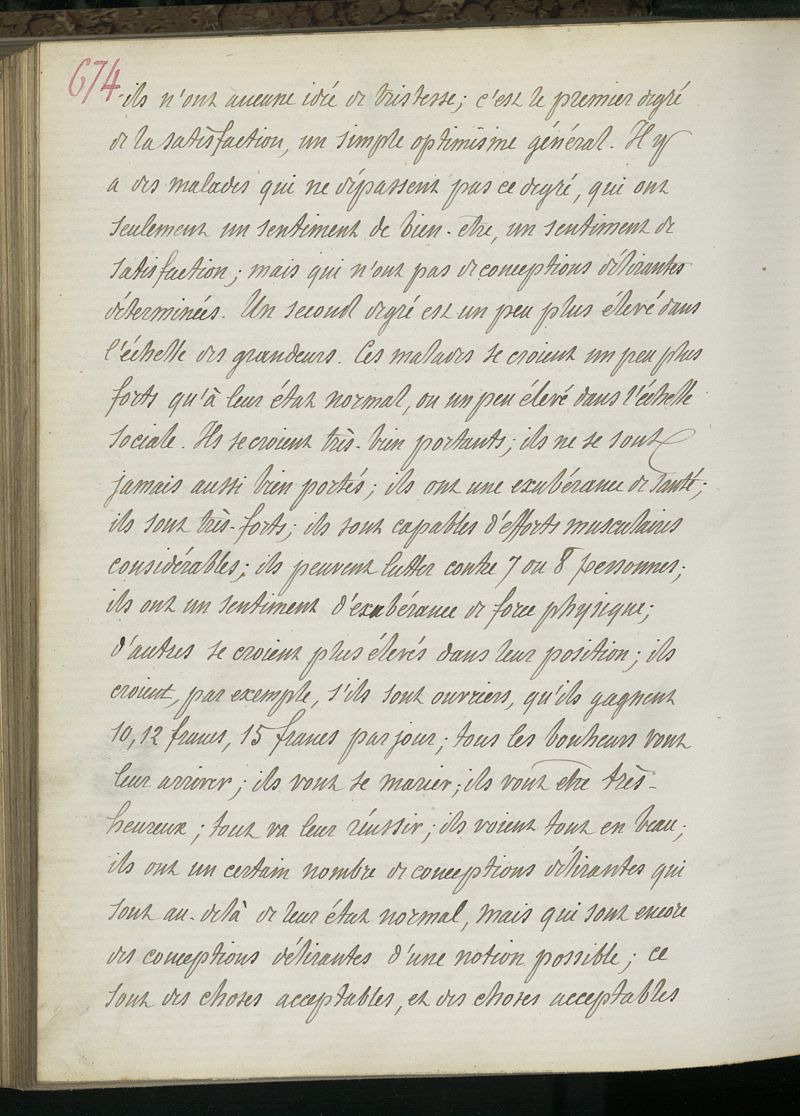 674
ils n'ont aucune idée de tristesse; c'est le premier degré
de la satisfaction, un simple optimisme général. Il y
a des malades qui ne dépassent pas ce degré, qui ont
seulement un sentiment de bien-être, un sentiment de
satisfaction; mais qui n'ont pas de conceptions délirantes
déterminées. Un second degré est un peu plus élevé dans
l'échelle des grandeurs. Ces malades se croient un peu plus
forts qu'à leur état normal, ou un peu élevé dans l'échelle
sociale. Ils se croient très-bien portants; ils ne se sont
jamais aussi bien portés; ils ont une exubérance de santé;
ils sont très-forts; ils sont capables d'efforts musculaires
considérables; ils peuvent lutter contre 7 ou 8 personnes;
ils ont un sentiment d'exubérance de force physique;
d'autres se croient plus élevés dans leur position; ils
croient, par exemple, s'ils sont ouvriers, qu'ils gagnent
10, 12 francs, 15 francs par jour; tous les bonheurs vont
leur arriver; ils vont se marier; ils vont être très-
heureux; tout va leur réussir; ils voient tout en beau;
ils ont un certain nombre de conceptions délirantes qui
sont au-delà de leur état normal, mais qui sont encore
des conceptions délirantes d'une notion possible; ce
sont des choses acceptables, et des choses acceptables